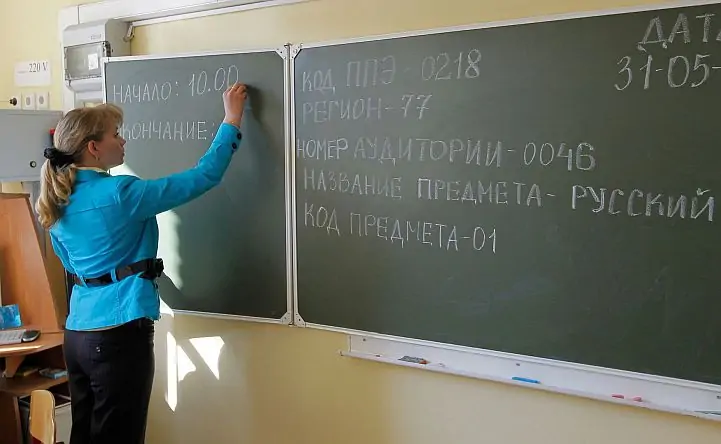 220 V
НАЧАЛО: 10.00
ОКОНЧАНИЕ:
КОД ППЭ-0218
РЕГИОН-77
НОМЕР АУДИТОРИИ-0046
НАЗВАНИЕ ПРЕДМЕТА- РУССКИЙ
КОД ПРЕДМЕТА-01
ДАТА
31-05-